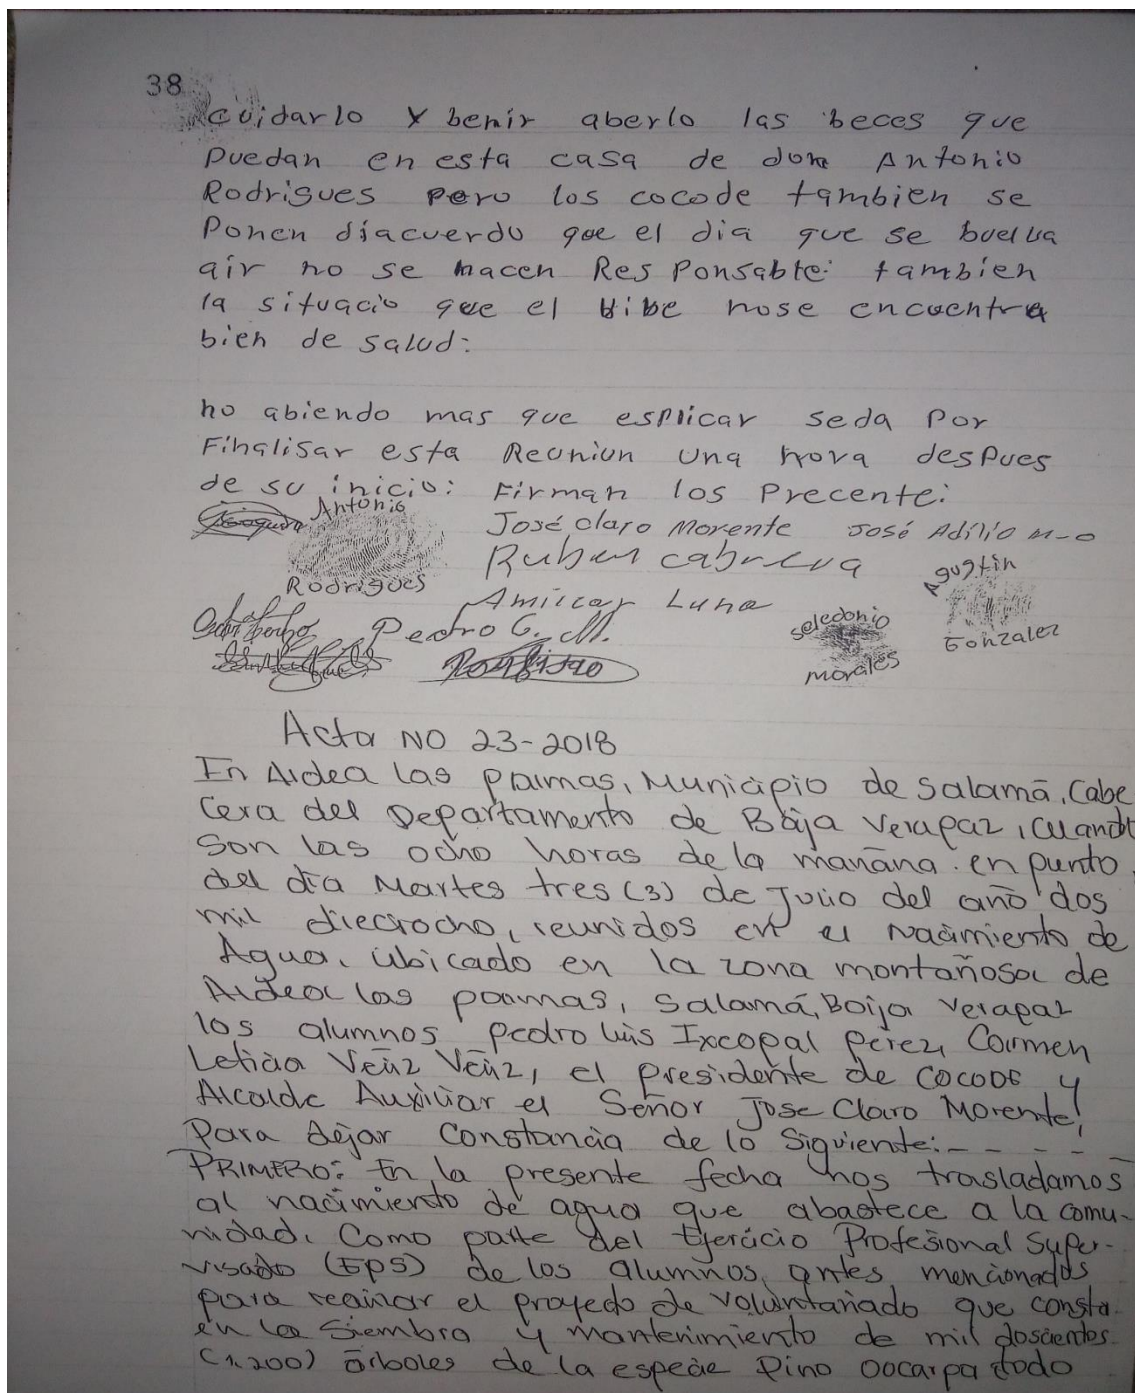 38
cuidarlo y benir aberlo las beces que
Puedan en esta casa de don Antonio
Rodrigues pero los cocode tambien se
Ponen diacuerdo que el dia que se buelba
air no se hacen Res Ponsable: tambien
la situacio que el bibe nose encuentra
bien de salud:
no abiendo mas que esplicar seda Por
Finalisar esta Reuniun una hora despues
de su inicio: Firman los Precente:
Antonio
Rodrigues
José claro Morente José Adilio M-o
Ruben Cabrera
Agustin
Gonzalez
Amilcar Luna
Pedro G. M.
seledonio
morales
Acta NO 23-2018
En Aldea las palmas, Municipio de Salamá, Cabe
cera del Departamento de Baja Verapaz, cuando
Son las ocho horas de la mañana en punto
del día Martes tres (3) de Julio del año dos
mil dieciocho, reunidos en el Nacimiento de
Agua, ubicado en la zona montañosa de
Aldea las palmas, Salamá, Baja Verapaz
los alumnos Pedro luis Ixcopal Perez, Carmen
Leticia Veliz Veliz, el presidente de COCODE y
Alcalde Auxiliar el Señor Jose Claro Morente,
Para dejar Constancia de lo siguiente: - - - -
PRIMERO: En la presente fecha nos trasladamos
al nacimiento de agua que abastece a la comu-
nidad, Como parte del Ejercicio Profesional Super-
visado (EPS) de los alumnos antes mencionados
para realizar el proyecto de voluntariado que consta
en la Siembra y mantenimiento de mil doscientos
(1,200) árboles de la especie Pino oocarpa todo